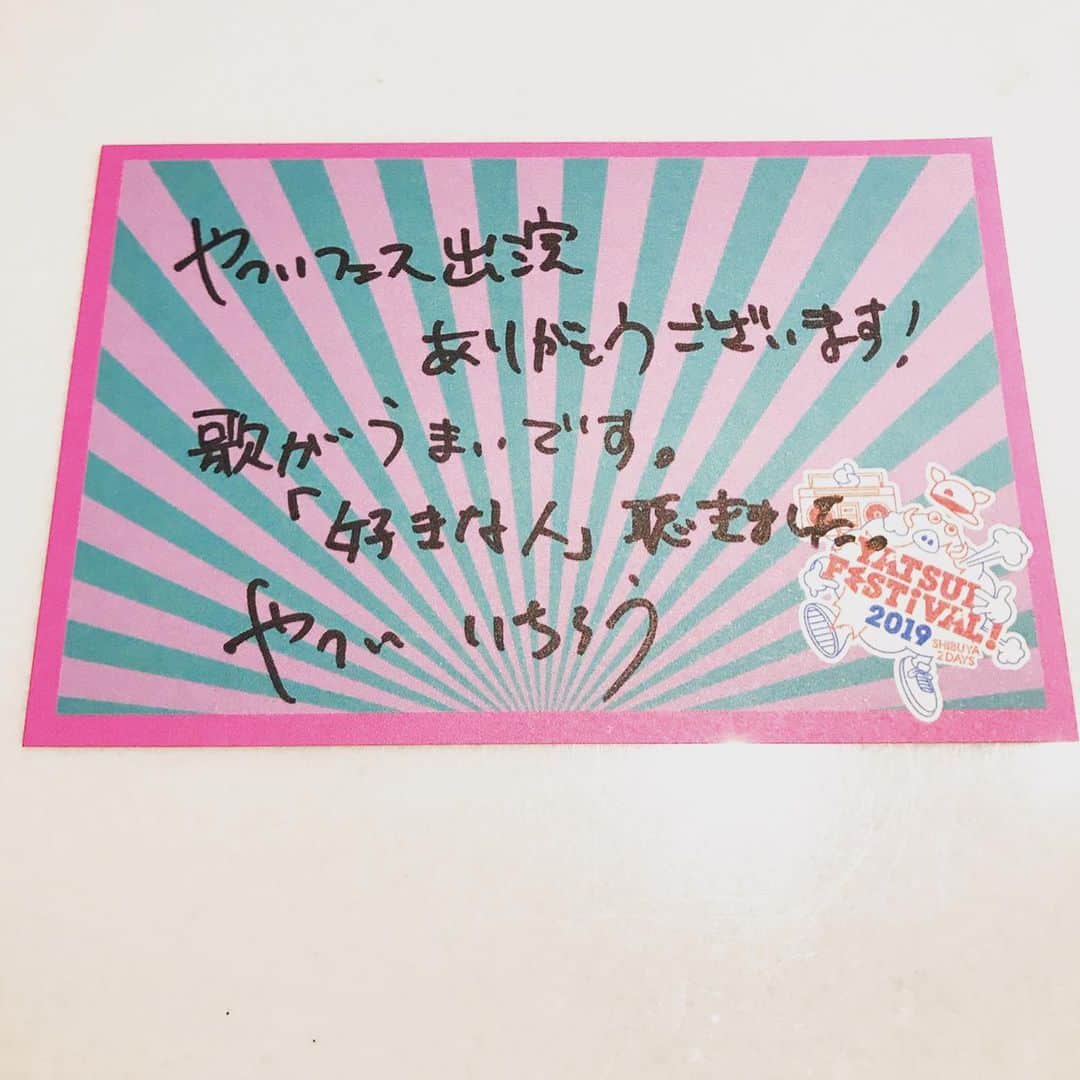 やついフェス出演
ありがとうございます！
歌がうまいです。
「好きな人」聴きました。
やつい いちろう
YATSUI
FESTiVAL!
2019
SHIBUYA
2DAYS